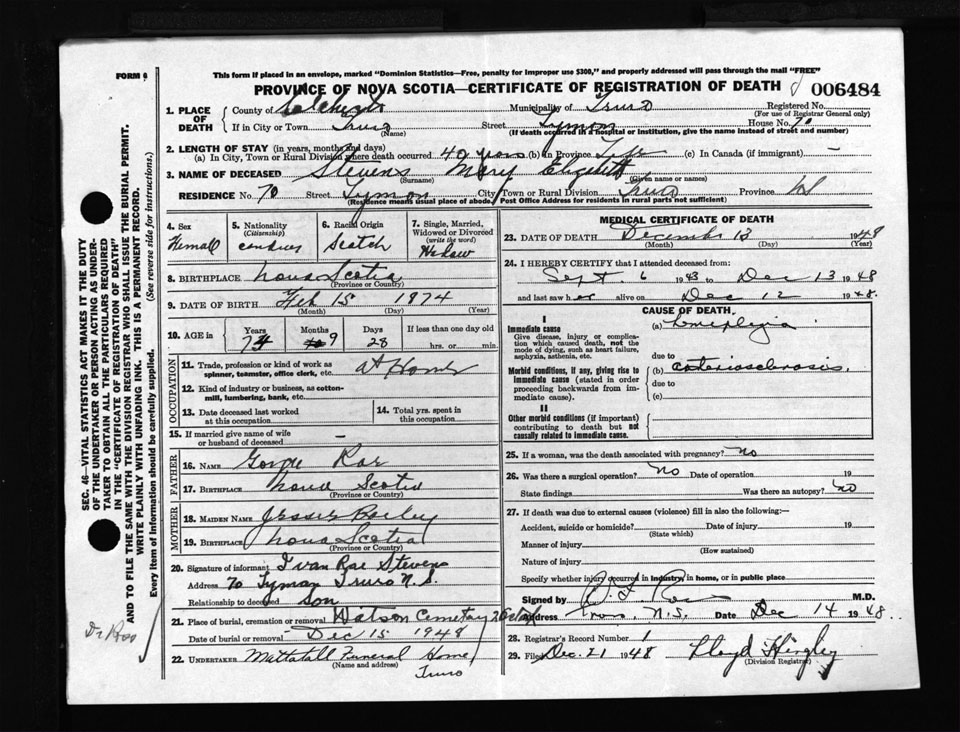 FORM 6
This form if placed in an envelope, marked "Dominion Statistics—Free, penalty for improper use $300," and properly addressed will pass through the mail "FREE"
PROVINCE OF NOVA SCOTIA—CERTIFICATE OF REGISTRATION OF DEATH 006484
1. PLACE OF DEATH County of Colchester Municipality of Truro Registered No.
(For use of Registrar General only)
If in City or Town Truro Street Lyman House No. 70
(Name) (If death occurred in a hospital or institution, give the name instead of street and number)
2. LENGTH OF STAY (in years, months and days)
(a) In City, Town or Rural Division where death occurred 40 years (b) in Province Life (c) In Canada (if immigrant) —
3. NAME OF DECEASED Stevens Mary Elizabeth
(Surname) (Given name or names)
RESIDENCE No. 70 Street Lyman City/Town or Rural Division Truro Province NS
(Residence means usual place of abode. Post Office Address for residents in rural parts not sufficient)
4. Sex
5. Nationality (Citizenship)
6. Racial Origin
7. Single, Married, Widowed or Divorced (write the word)
Scotch
8. BIRTHPLACE Nova Scotia
(Province or Country)
9. DATE OF BIRTH Feb 15 1874
(Month) (Day) (Year)
10. AGE in Years Months Days If less than one day old
74 9 28 hrs. or min.
OCCUPATION
11. Trade, profession or kind of work as spinner, teamster, office clerk, etc. At Home
12. Kind of industry or business, as cotton-mill, lumbering, bank, etc.
13. Date deceased last worked at this occupation
14. Total yrs. spent in this occupation
15. If married give name of wife or husband of deceased —
FATHER
16. NAME George Rae
17. BIRTHPLACE Nova Scotia
(Province or Country)
MOTHER
18. MAIDEN NAME Jessie
19. BIRTHPLACE Nova Scotia
(Province or Country)
20. Signature of informant Ivan Rae Stevens
Address 70 Lyman Truro N.S.
Relationship to deceased Son
21. Place of burial, cremation or removal Watson Cemetary
Date of burial or removal Dec 15 1948
22. UNDERTAKER Mattatall Funeral Home
(Name and address) Truro
MEDICAL CERTIFICATE OF DEATH
23. DATE OF DEATH December 13 1948
(Month) (Day) (Year)
24. I HEREBY CERTIFY that I attended deceased from:
Sept. 6 1943 to Dec 13 1948
and last saw her alive on Dec 12 1948.
CAUSE OF DEATH
I
Immediate cause
Give disease, injury or complication which caused death, not the mode of dying, such as heart failure, asphyxia, asthenia, etc.
(a) hemiplegia
due to
Morbid conditions, if any, giving rise to immediate cause (stated in order proceeding backwards from immediate cause).
(b) arteriosclerosis.
due to
(c)
II
Other morbid conditions (if important) contributing to death but not causally related to immediate cause.
25. If a woman, was the death associated with pregnancy? no
26. Was there a surgical operation? No Date of operation 19
State findings Was there an autopsy? no
27. If death was due to external causes (violence) fill in also the following:—
Accident, suicide or homicide? Date of injury 19
(State which)
Manner of injury
(How sustained)
Nature of injury
Specify whether injury occurred in industry, in home, or in public place
Signed by M.D.
Address Truro, N.S. Date Dec 14 1948
28. Registrar's Record Number 1
29. Filed Dec. 21 1948 Lloyd Hingley
(Division Registrar)
SEC. 46—VITAL STATISTICS ACT MAKES IT THE DUTY
OF THE UNDERTAKER OR PERSON ACTING AS UNDER-
TAKER TO OBTAIN ALL THE PARTICULARS REQUIRED
IN THE "CERTIFICATE OF REGISTRATION OF DEATH"
AND TO FILE THE SAME WITH THE DIVISION REGISTRAR WHO SHALL ISSUE THE BURIAL PERMIT.
WRITE PLAINLY WITH UNFADING INK. THIS IS A PERMANENT RECORD.
Every item of information should be carefully supplied. (See reverse side for instructions.)
Dr Ross